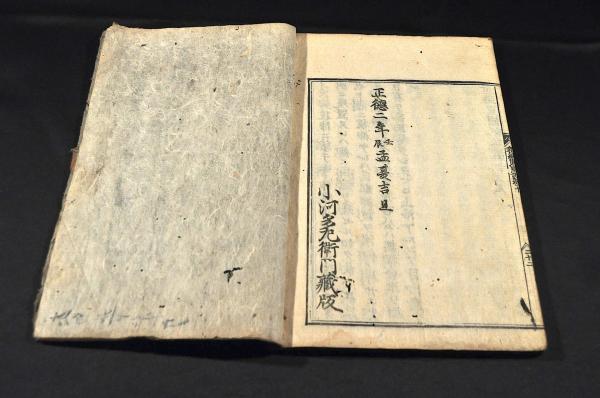 正德二年壬辰孟夏吉旦
小河多左衛門藏版